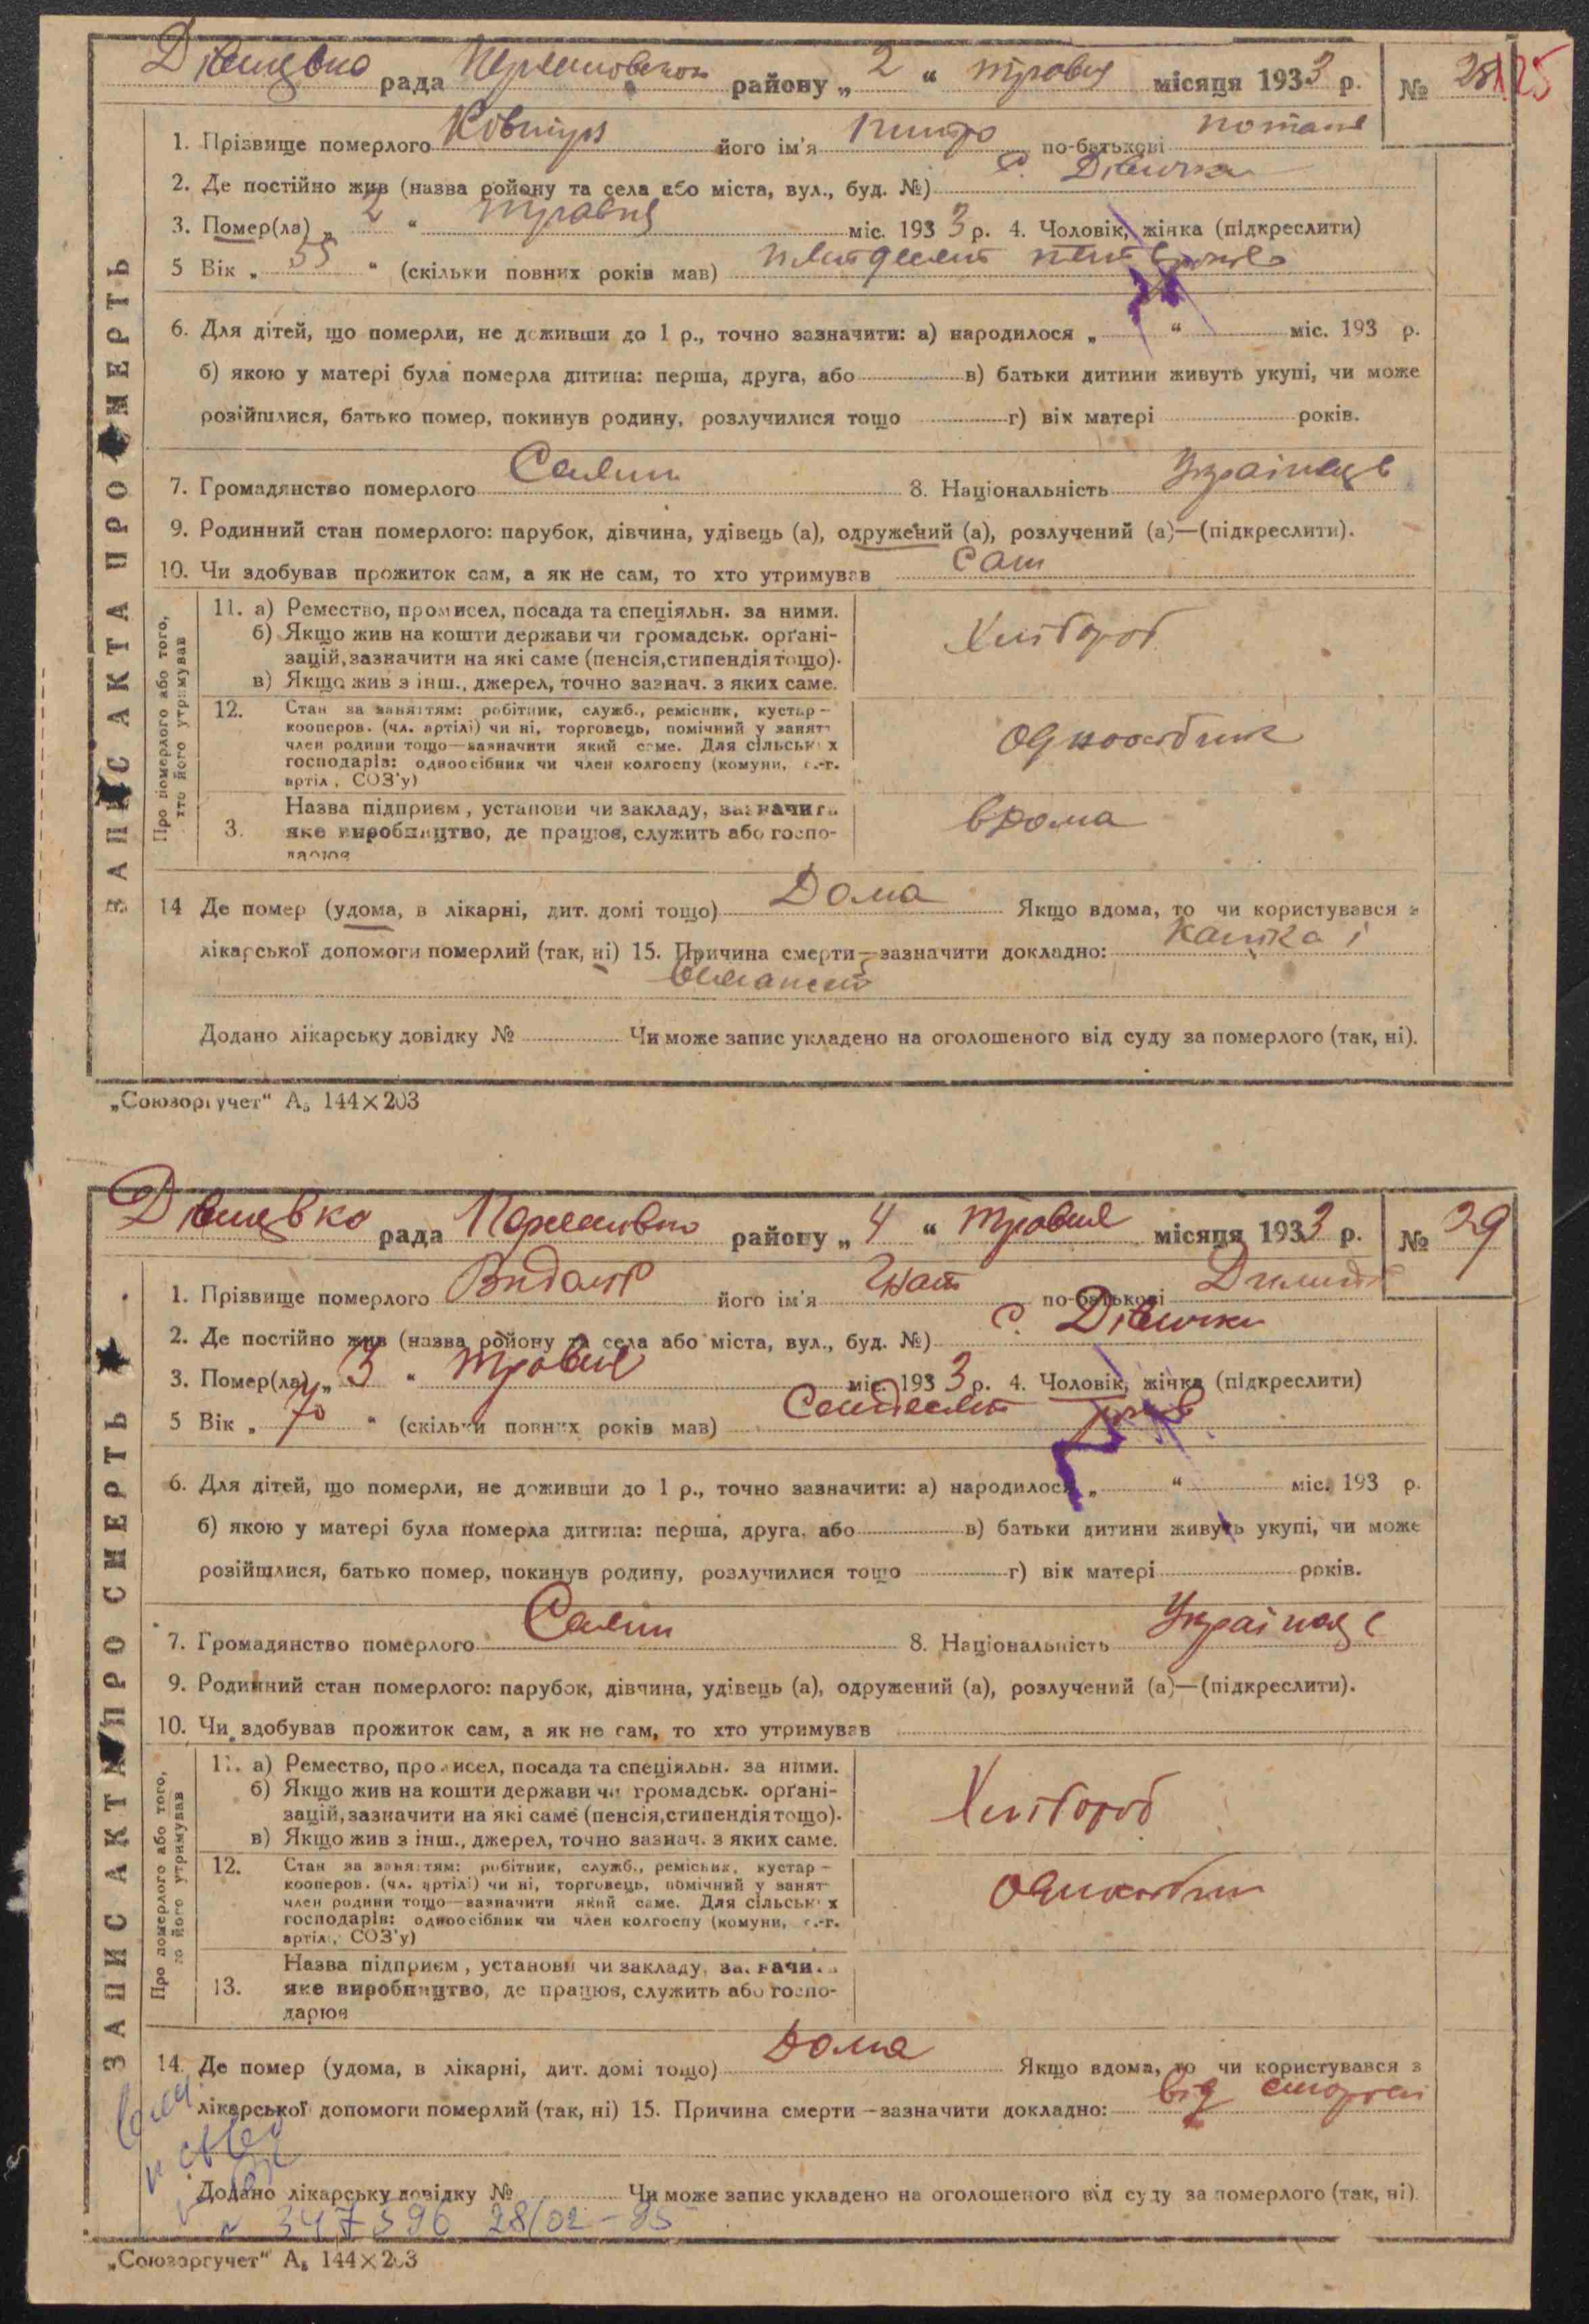 Дівицько рада району „ 2 “ травня місяця 1933 р. № 28 125
1. Прізвище померлого Ковтун його ім'я по-батькові
2. Де постійно жив (назва ройону та села або міста, вул., буд. №) с. Дівички
3. Помер(ла) „ 2 “ травня міс. 1933 р. 4. Чоловік, жінка (підкреслити)
5 Вік „ 55 “ (скільки повних років мав) пятдесят пять років
6. Для дітей, що померли, не доживши до 1 р., точно зазначити: а) народилося „ “ міс. 193 р.
б) якою у матері була померла дитина: перша, друга, або в) батьки дитини живуть укупі, чи може
розійшлися, батько помер, покинув родину, розлучилися тощо г) вік матері років.
7. Громадянство померлого Селян 8. Національність Українець
9. Родинний стан померлого: парубок, дівчина, удівець (а), одружений (а), розлучений (а)—(підкреслити).
10. Чи здобував прожиток сам, а як не сам, то хто утримував Сам
ЗАПИС АКТА ПРО СМЕРТЬ
Про померлого або того,
хто його утримував
11. а) Ремество, промисел, посада та спеціяльн. за ними.
б) Якщо жив на кошти держави чи громадськ. орґані-
зацій, зазначити на які саме (пенсія, стипендія тощо).
в) Якщо жив з інш., джерел, точно зазнач. з яких саме.
Хлібороб
12. Стан за заняттям: робітник, служб., ремісник, кустар —
кооперов. (чл. артілі) чи ні, торговець, помічний у занят
член родини тощо—зазначити який саме. Для сільськ х
господарів: одноосібник чи член колгоспу (комуни, с.-г.
артіл, СОЗ'у)
Одноосібник
3. Назва підприєм, установи чи закладу, зазначить
яке виробництво, де працює, служить або госпо-
дарює
вдома
14 Де помер (удома, в лікарні, дит. домі тощо) Дома Якщо вдома, то чи користувався з
лікарської допомоги померлий (так, ні) 15. Причина смерти—зазначити докладно: і
Додано лікарську довідку № Чи може запис укладено на оголошеного від суду за померлого (так, ні).
„Союзоргучет“ А₅ 144×203
Дівицько рада району „ 4 “ травня місяця 1933 р. № 29
1. Прізвище померлого його ім'я Гнат по-батькові
2. Де постійно жив (назва ройону та села або міста, вул., буд. №) с. Дівички
3. Помер(ла) „ 3 “ травня міс. 1933 р. 4. Чоловік, жінка (підкреслити)
5 Вік „ 70 “ (скільки повних років мав) Семдесят років
6. Для дітей, що померли, не доживши до 1 р., точно зазначити: а) народилося „ “ міс. 193 р.
б) якою у матері була померла дитина: перша, друга, або в) батьки дитини живуть укупі, чи може
розійшлися, батько помер, покинув родину, розлучилися тощо г) вік матері років.
7. Громадянство померлого Селян 8. Національність Українец
9. Родинний стан померлого: парубок, дівчина, удівець (а), одружений (а), розлучений (а)—(підкреслити).
10. Чи здобував прожиток сам, а як не сам, то хто утримував
ЗАПИС АКТА ПРО СМЕРТЬ
Про померлого або того,
хто його утримував
11. а) Ремество, промисел, посада та спеціяльн. за ними.
б) Якщо жив на кошти держави чи громадськ. орґані-
зацій, зазначити на які саме (пенсія, стипендія тощо).
в) Якщо жив з інш., джерел, точно зазнач. з яких саме.
Хлібороб
12. Стан за заняттям: робітник, служб., ремісник, кустар —
кооперов. (чл. артілі) чи ні, торговець, помічний у занят
член родини тощо—зазначити який саме. Для сільськ х
господарів: одноосібник чи член колгоспу (комуни, с.-г.
артіл., СОЗ'у)
Одноосібник
13. Назва підприєм, установи чи закладу, зазначить
яке виробництво, де працює, служить або госпо-
дарює
14. Де помер (удома, в лікарні, дит. домі тощо) Дома Якщо вдома, то чи користувався з
лікарської допомоги померлий (так, ні) 15. Причина смерти—зазначити докладно: від старости
Додано лікарську довідку № Чи може запис укладено на оголошеного від суду за померлого (так, ні).
№ 347596 28/02-95
„Союзоргучет“ А₅ 144×203